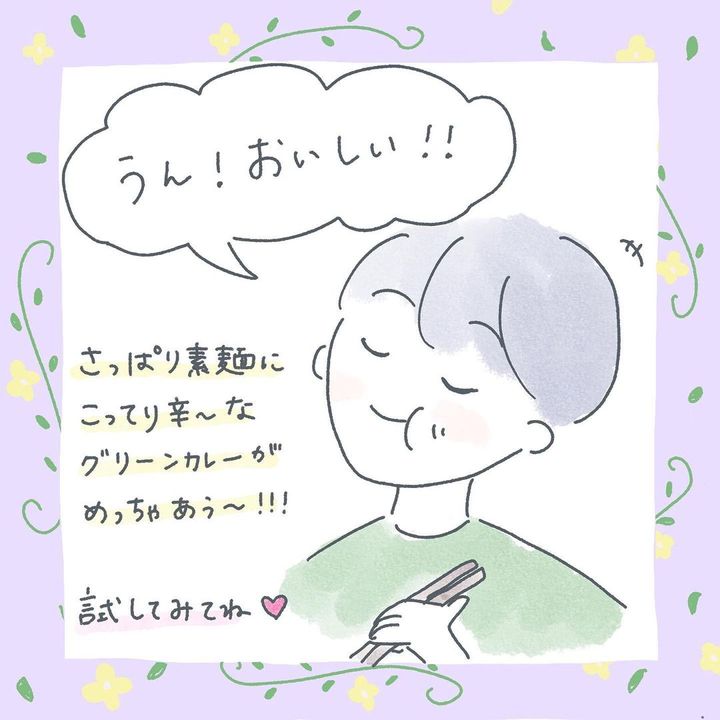 うん！おいしい！！
さっぱり素麺に
こってり辛〜な
グリーンカレーが
めっちゃあう〜！！！
試してみてね♥